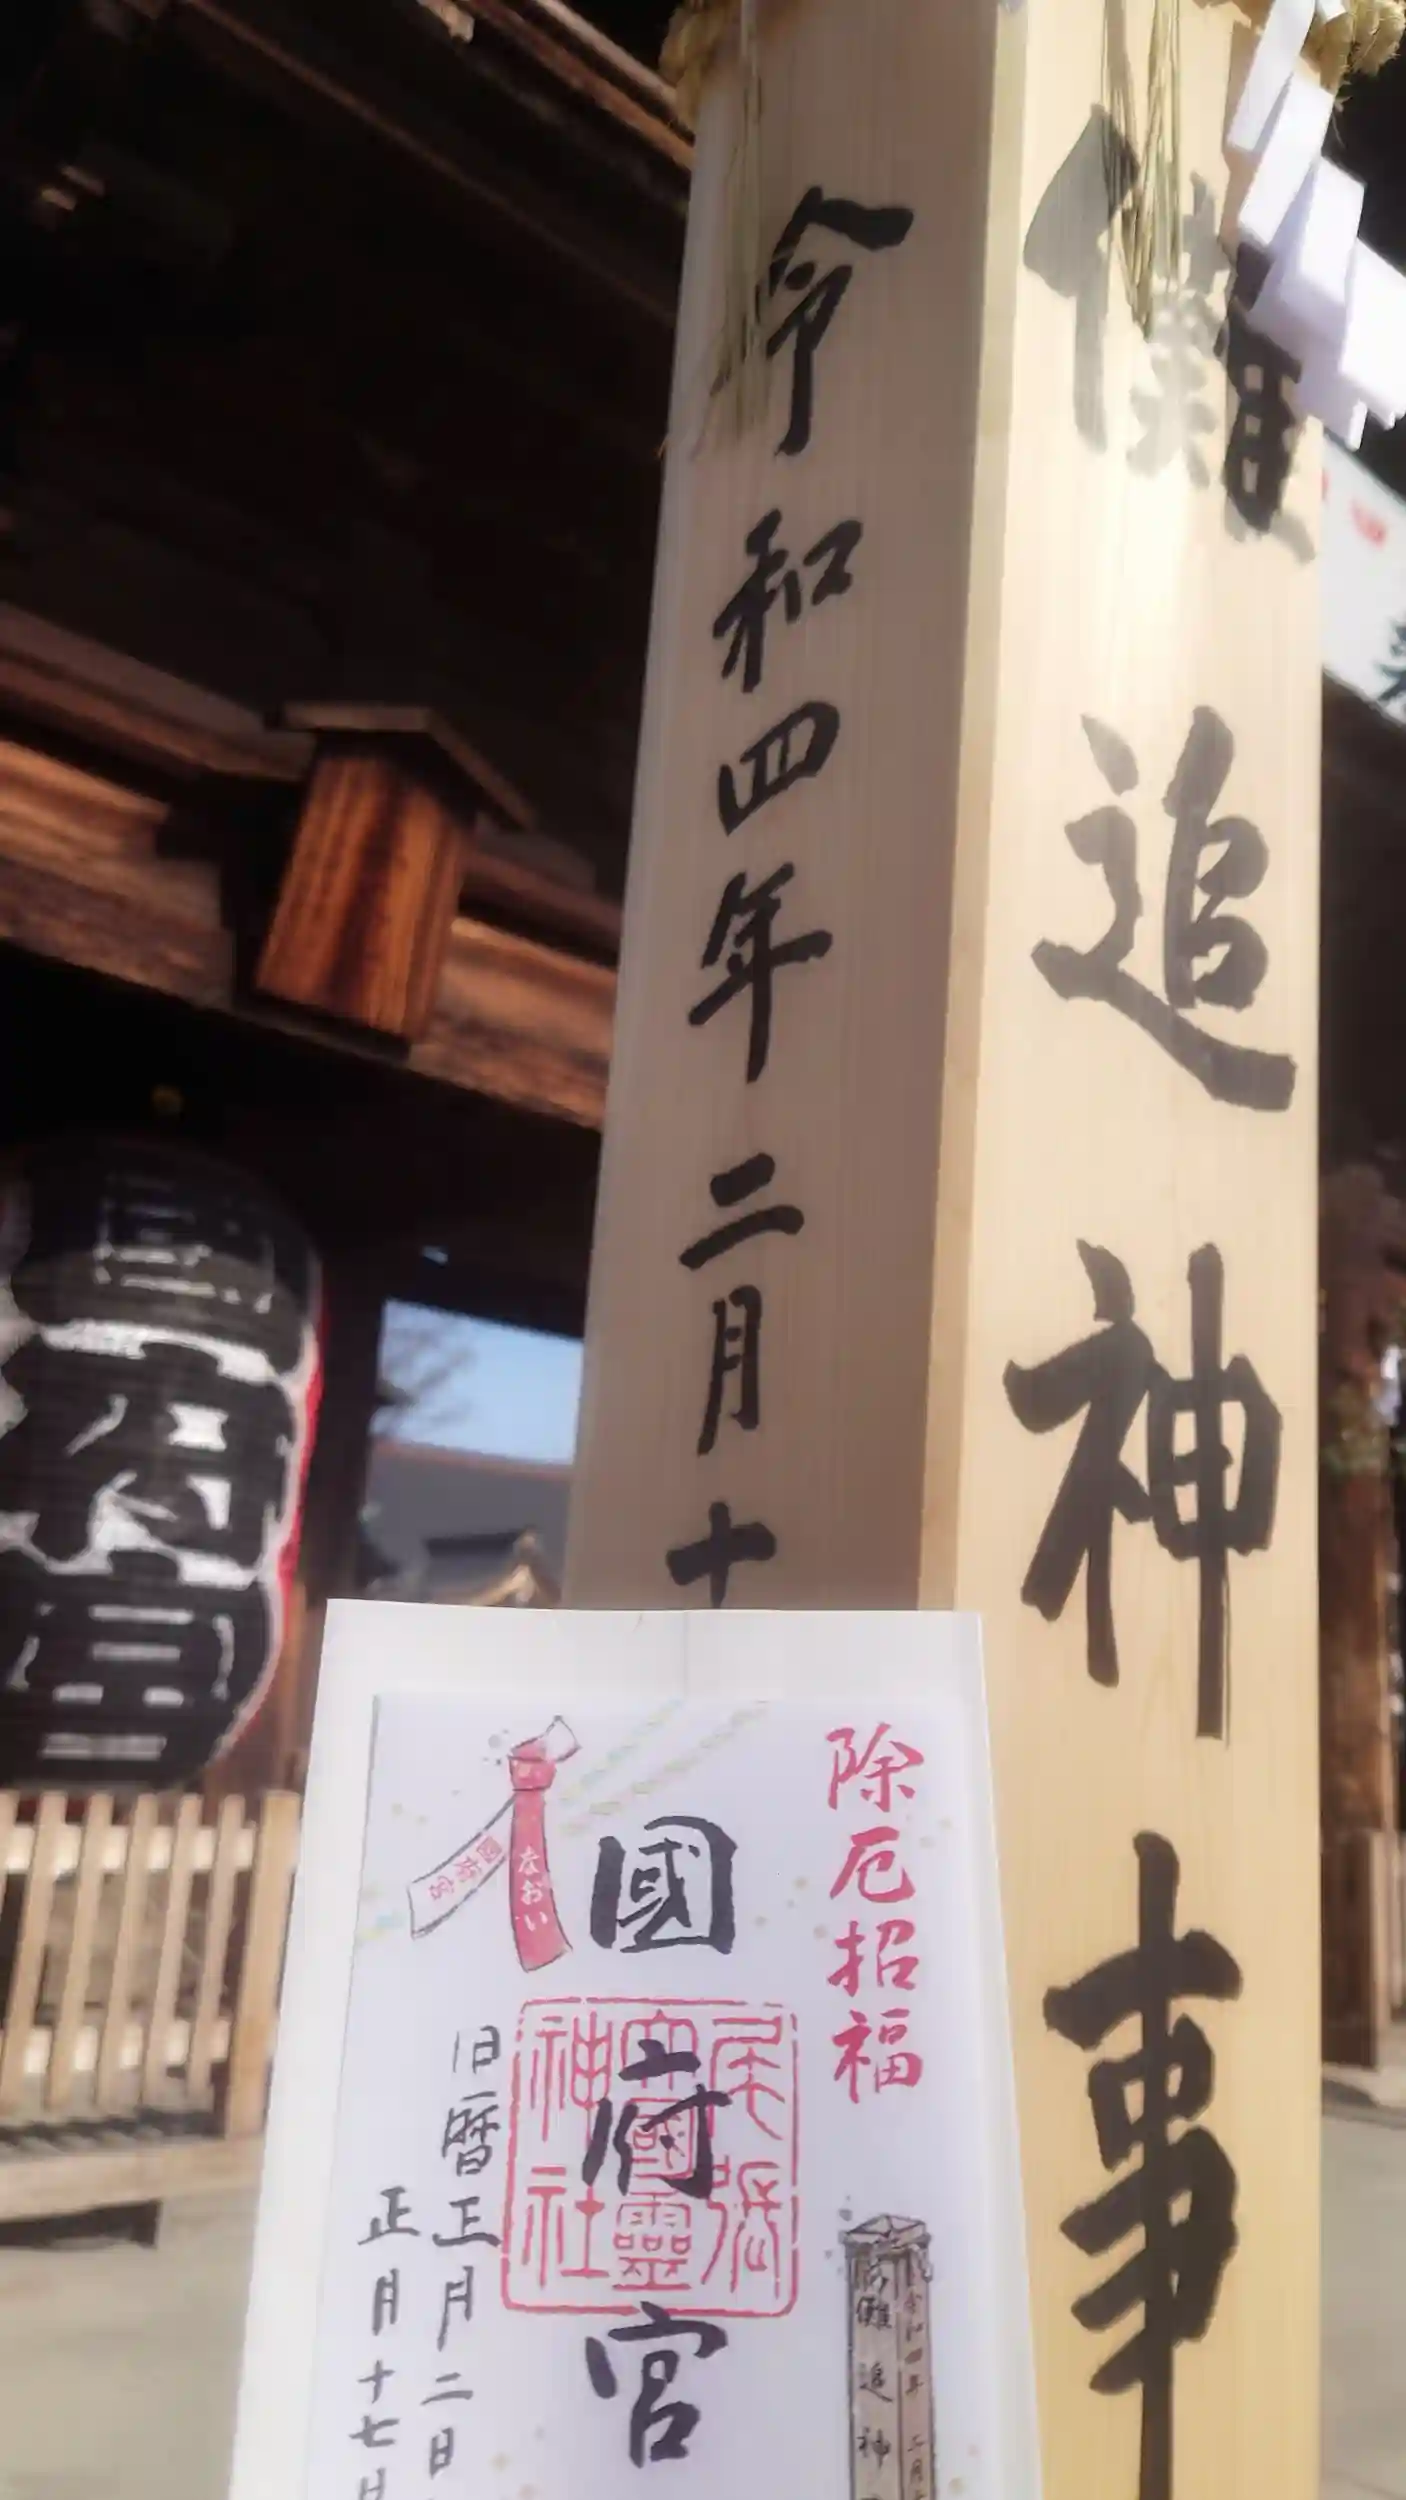 儺追神事
令和四年二月十
除厄招福
國府宮
尾張
大國霊
神社
旧暦正月二日
正月十七日
なおい
國府宮
儺追神
令和四年 二月